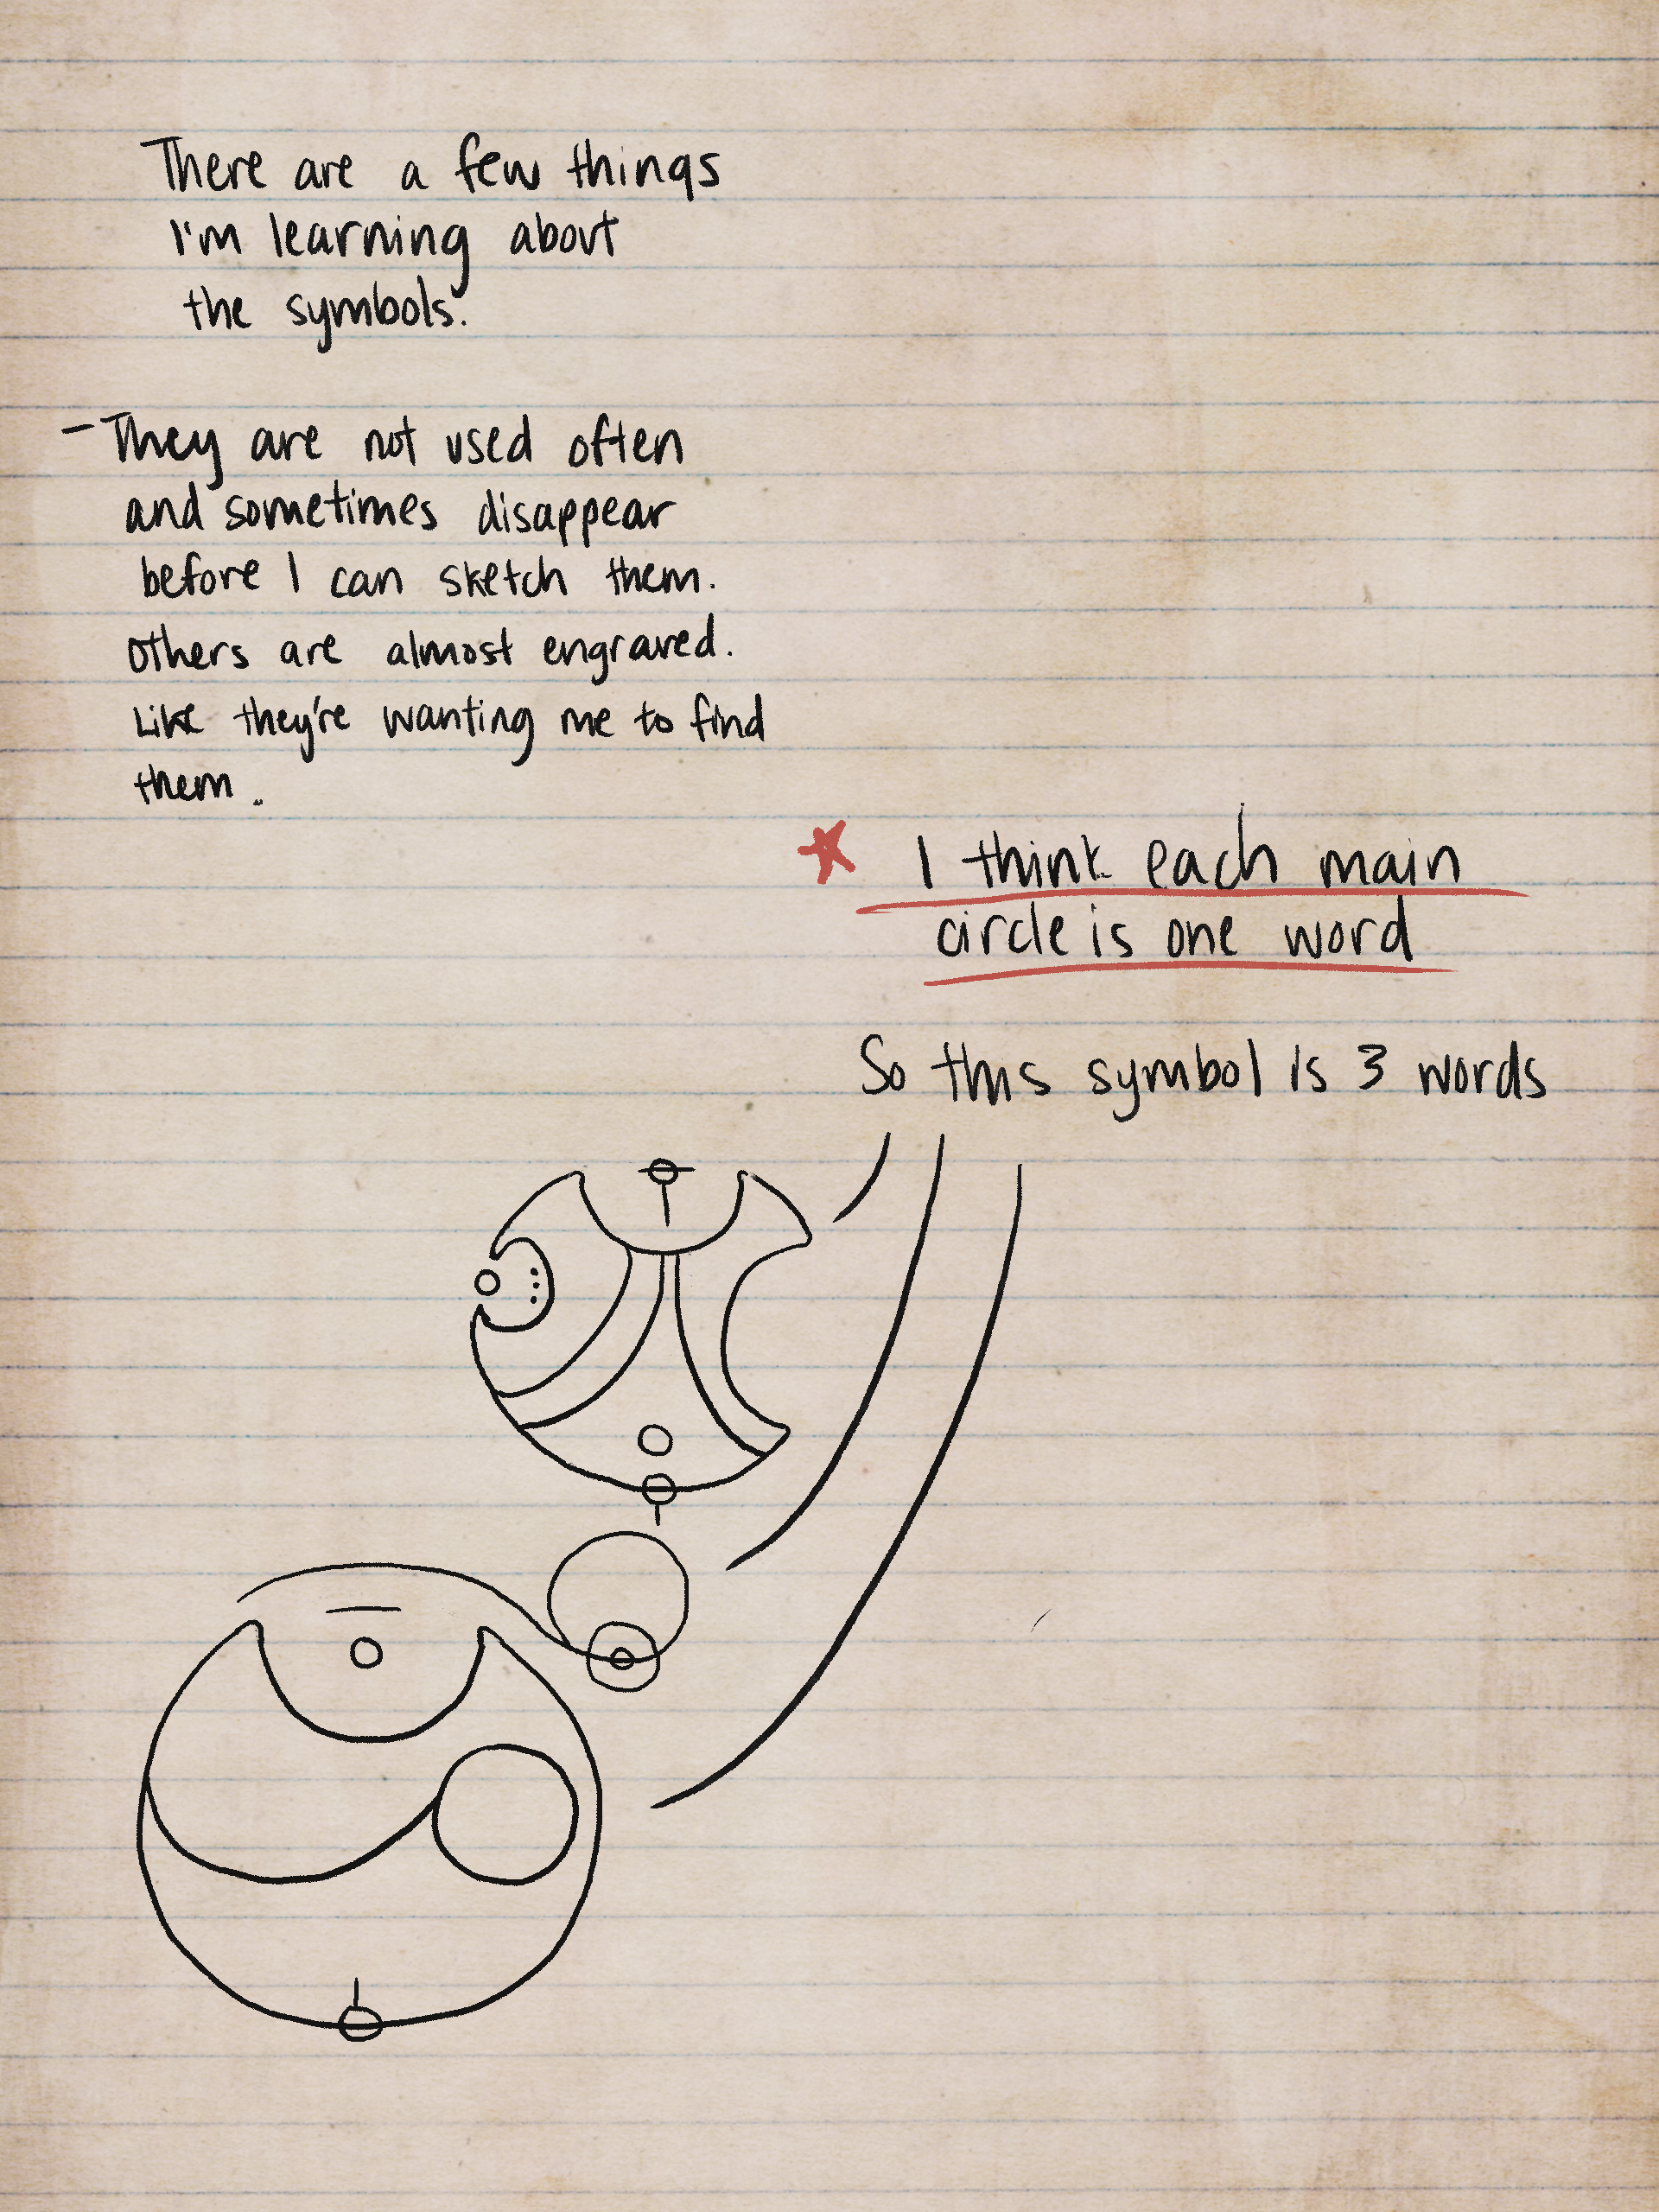 There are a few things
I'm learning about
the symbols.
- They are not used often
and sometimes disappear
before I can sketch them.
Others are almost engraved.
Like they're wanting me to find
them.
I think each main
circle is one word
So this symbol is 3 words